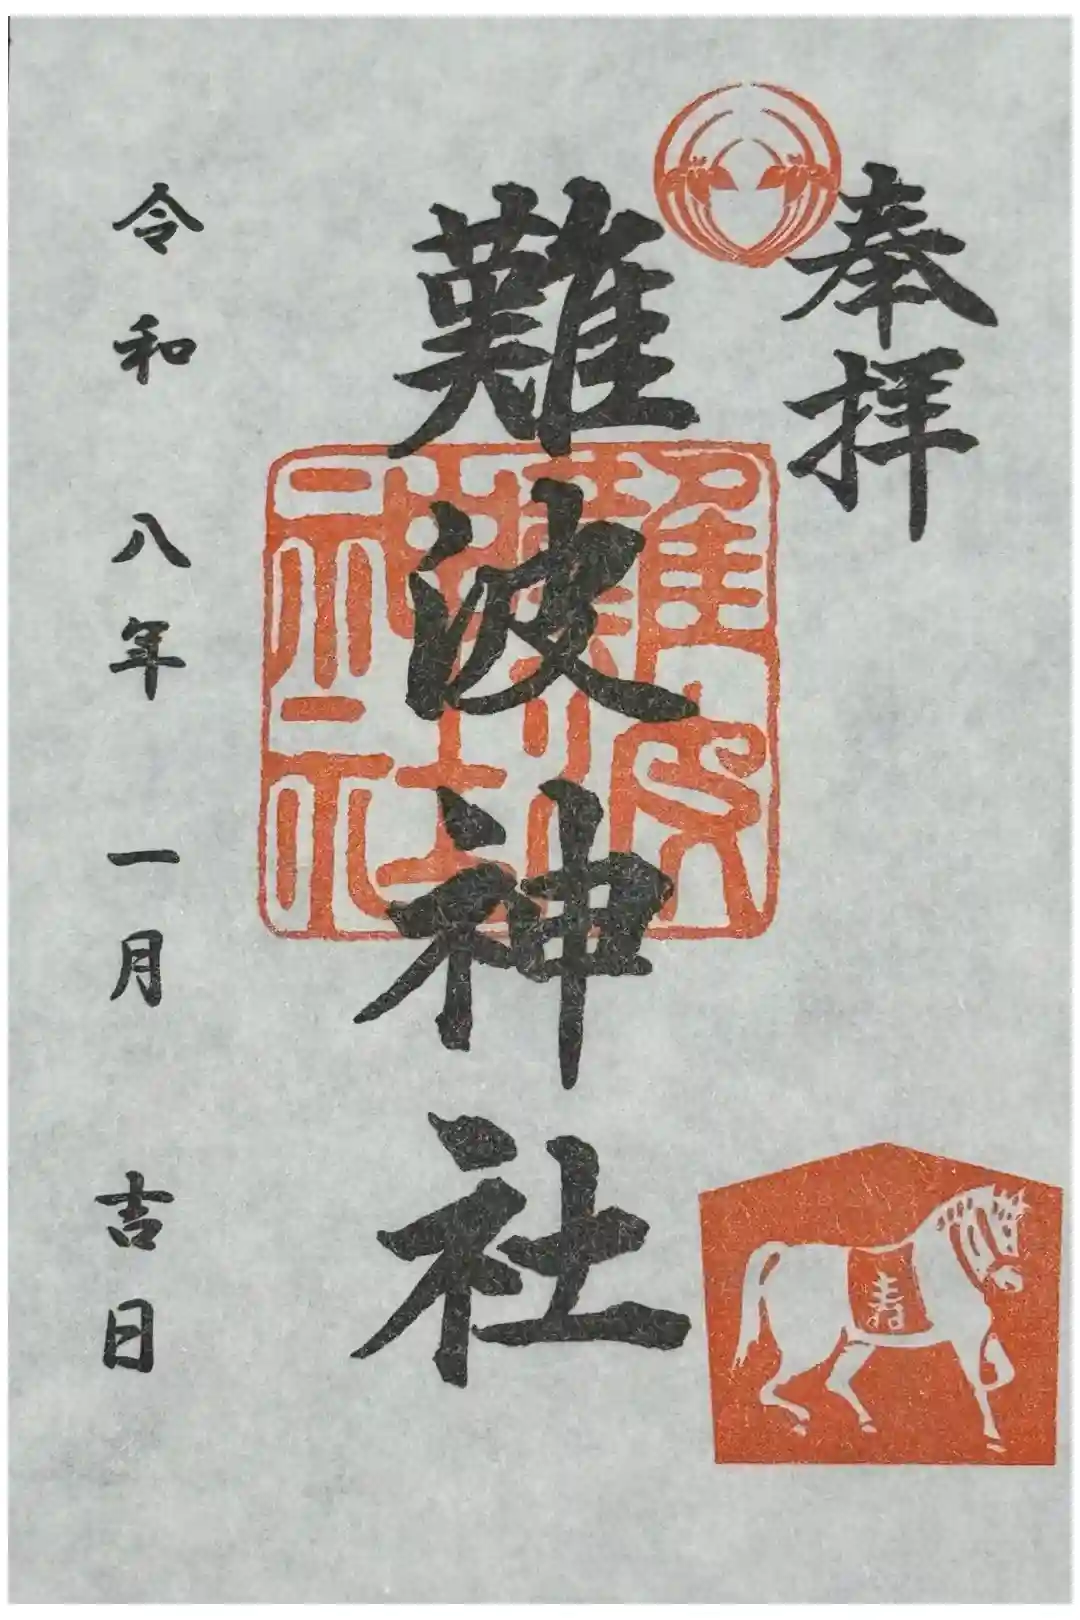 奉拝
難波神社
難波神社
寿
令和八年一月吉日